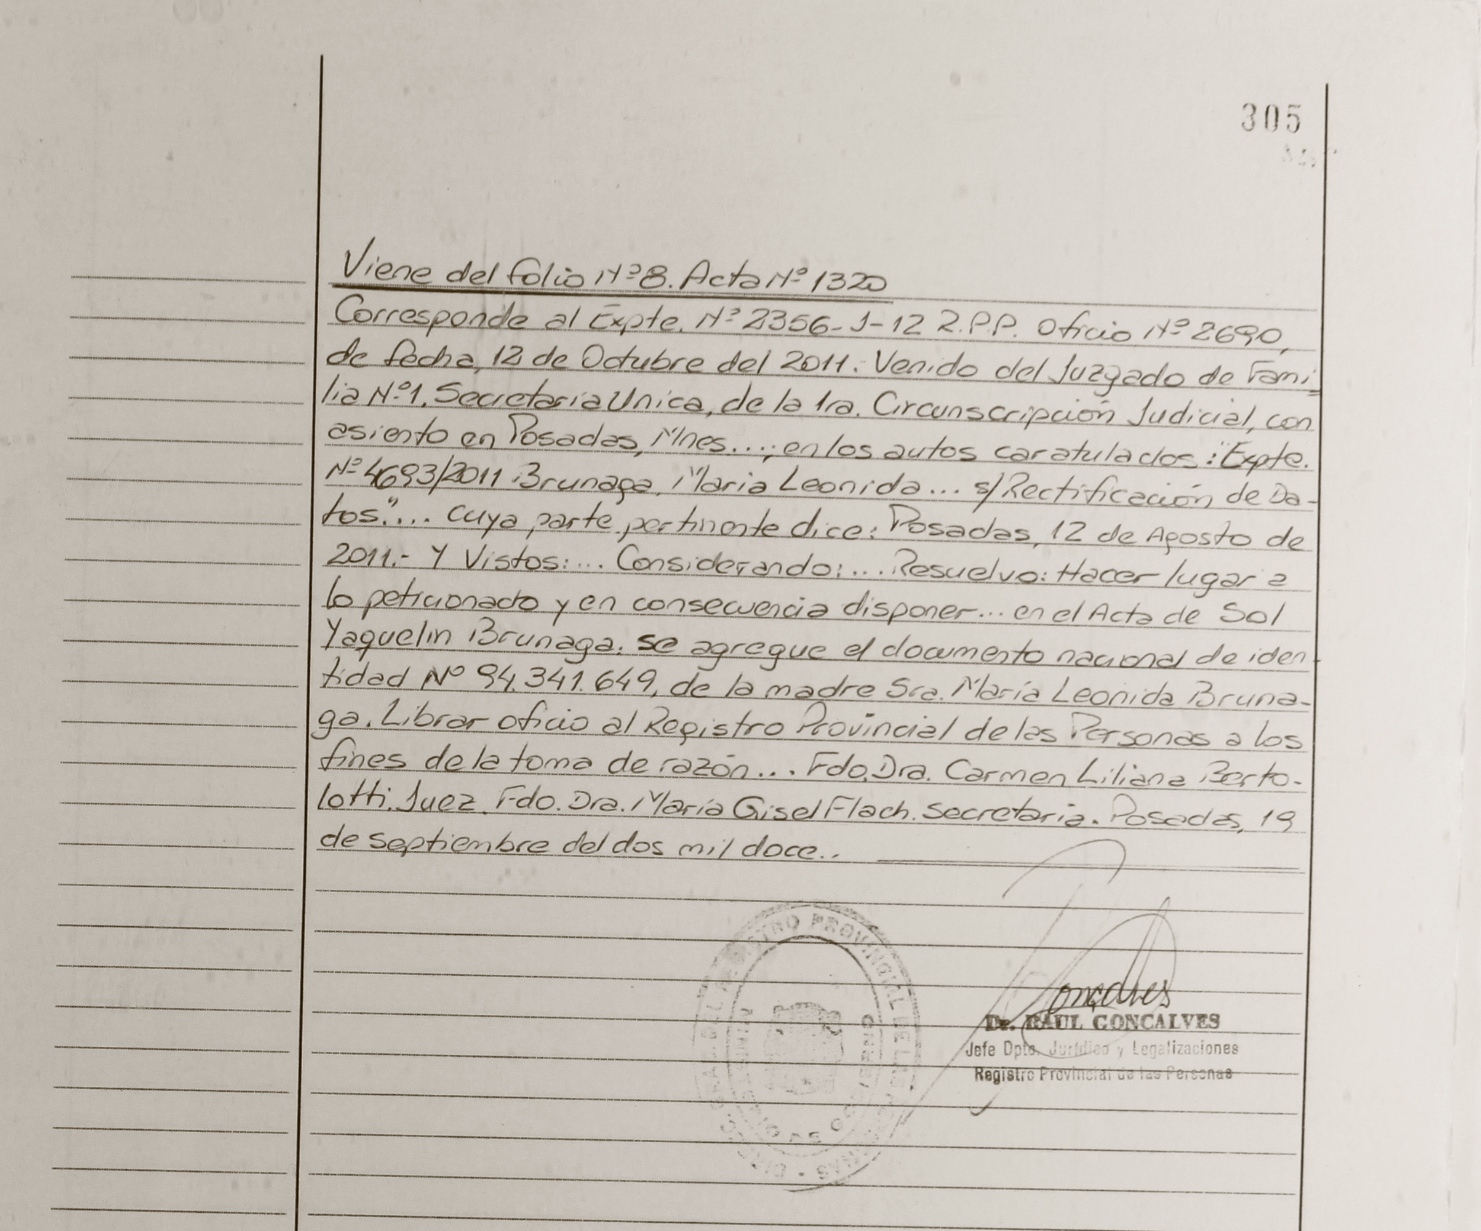 305
Viene del folio Nº 8. Acta Nº 1320
Corresponde al Expte. Nº 2356-J-12 R.P.P. Oficio Nº 2690,
de fecha, 12 de Octubre del 2011. Venido del Juzgado de Fami-
lia Nº1, Secretaria Unica, de la 1ra. Circunscripción Judicial, con
asiento en Posadas, Mnes...; en los autos caratulados: "Expte.
Nº 4693/2011 Brunaga, Maria Leonida... s/Rectificación de Da-
tos."... cuya parte pertinente dice: Posadas, 12 de Agosto de
2011.- Y Vistos:... Considerando:... Resuelvo: Hacer lugar a
lo peticionado y en consecuencia disponer... en el Acta de Sol
Yaquelin Brunaga. se agregue el documento nacional de iden-
tidad Nº 94.341.649, de la madre Sra. María Leonida Bruna-
ga. Librar oficio al Registro Provincial de las Personas a los
fines de la toma de razón... Fdo. Dra. Carmen Liliana Berto-
lotti. Juez. Fdo. Dra. María Gisel Flach. Secretaria. Posadas, 19
de septiembre del dos mil doce..
Goncalves
Dr. RAUL GONCALVES
Jefe Dpto. Jurídico y Legalizaciones
Registro Provincial de las Personas
REGISTRO PROVINCIAL DE LAS PERSONAS
MINISTERIO DE GOBIERNO